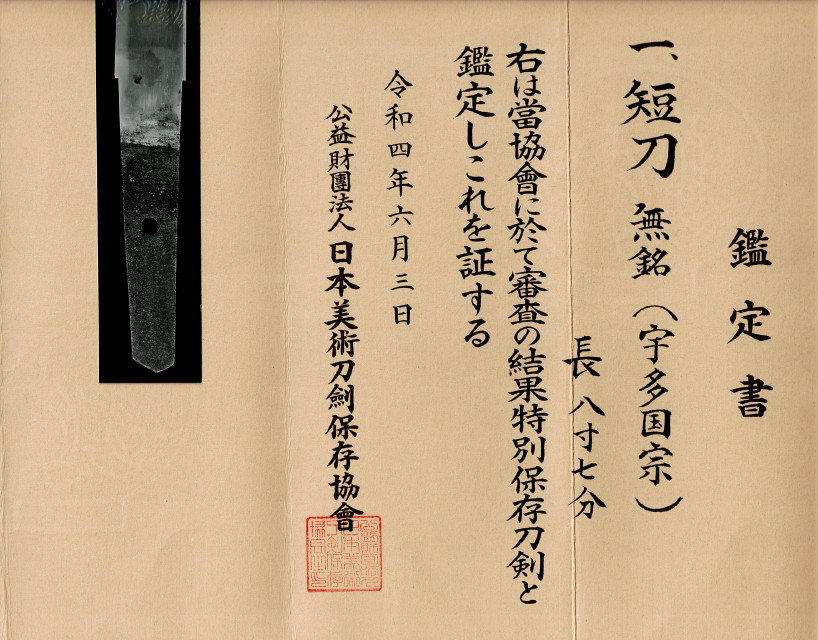 鑑定書
一、短刀 無銘（宇多国宗）
長 八寸七分
右は當協會に於て審査の結果特別保存刀剣と
鑑定しこれを証する
令和四年六月三日
公益財團法人 日本美術刀劍保存協會